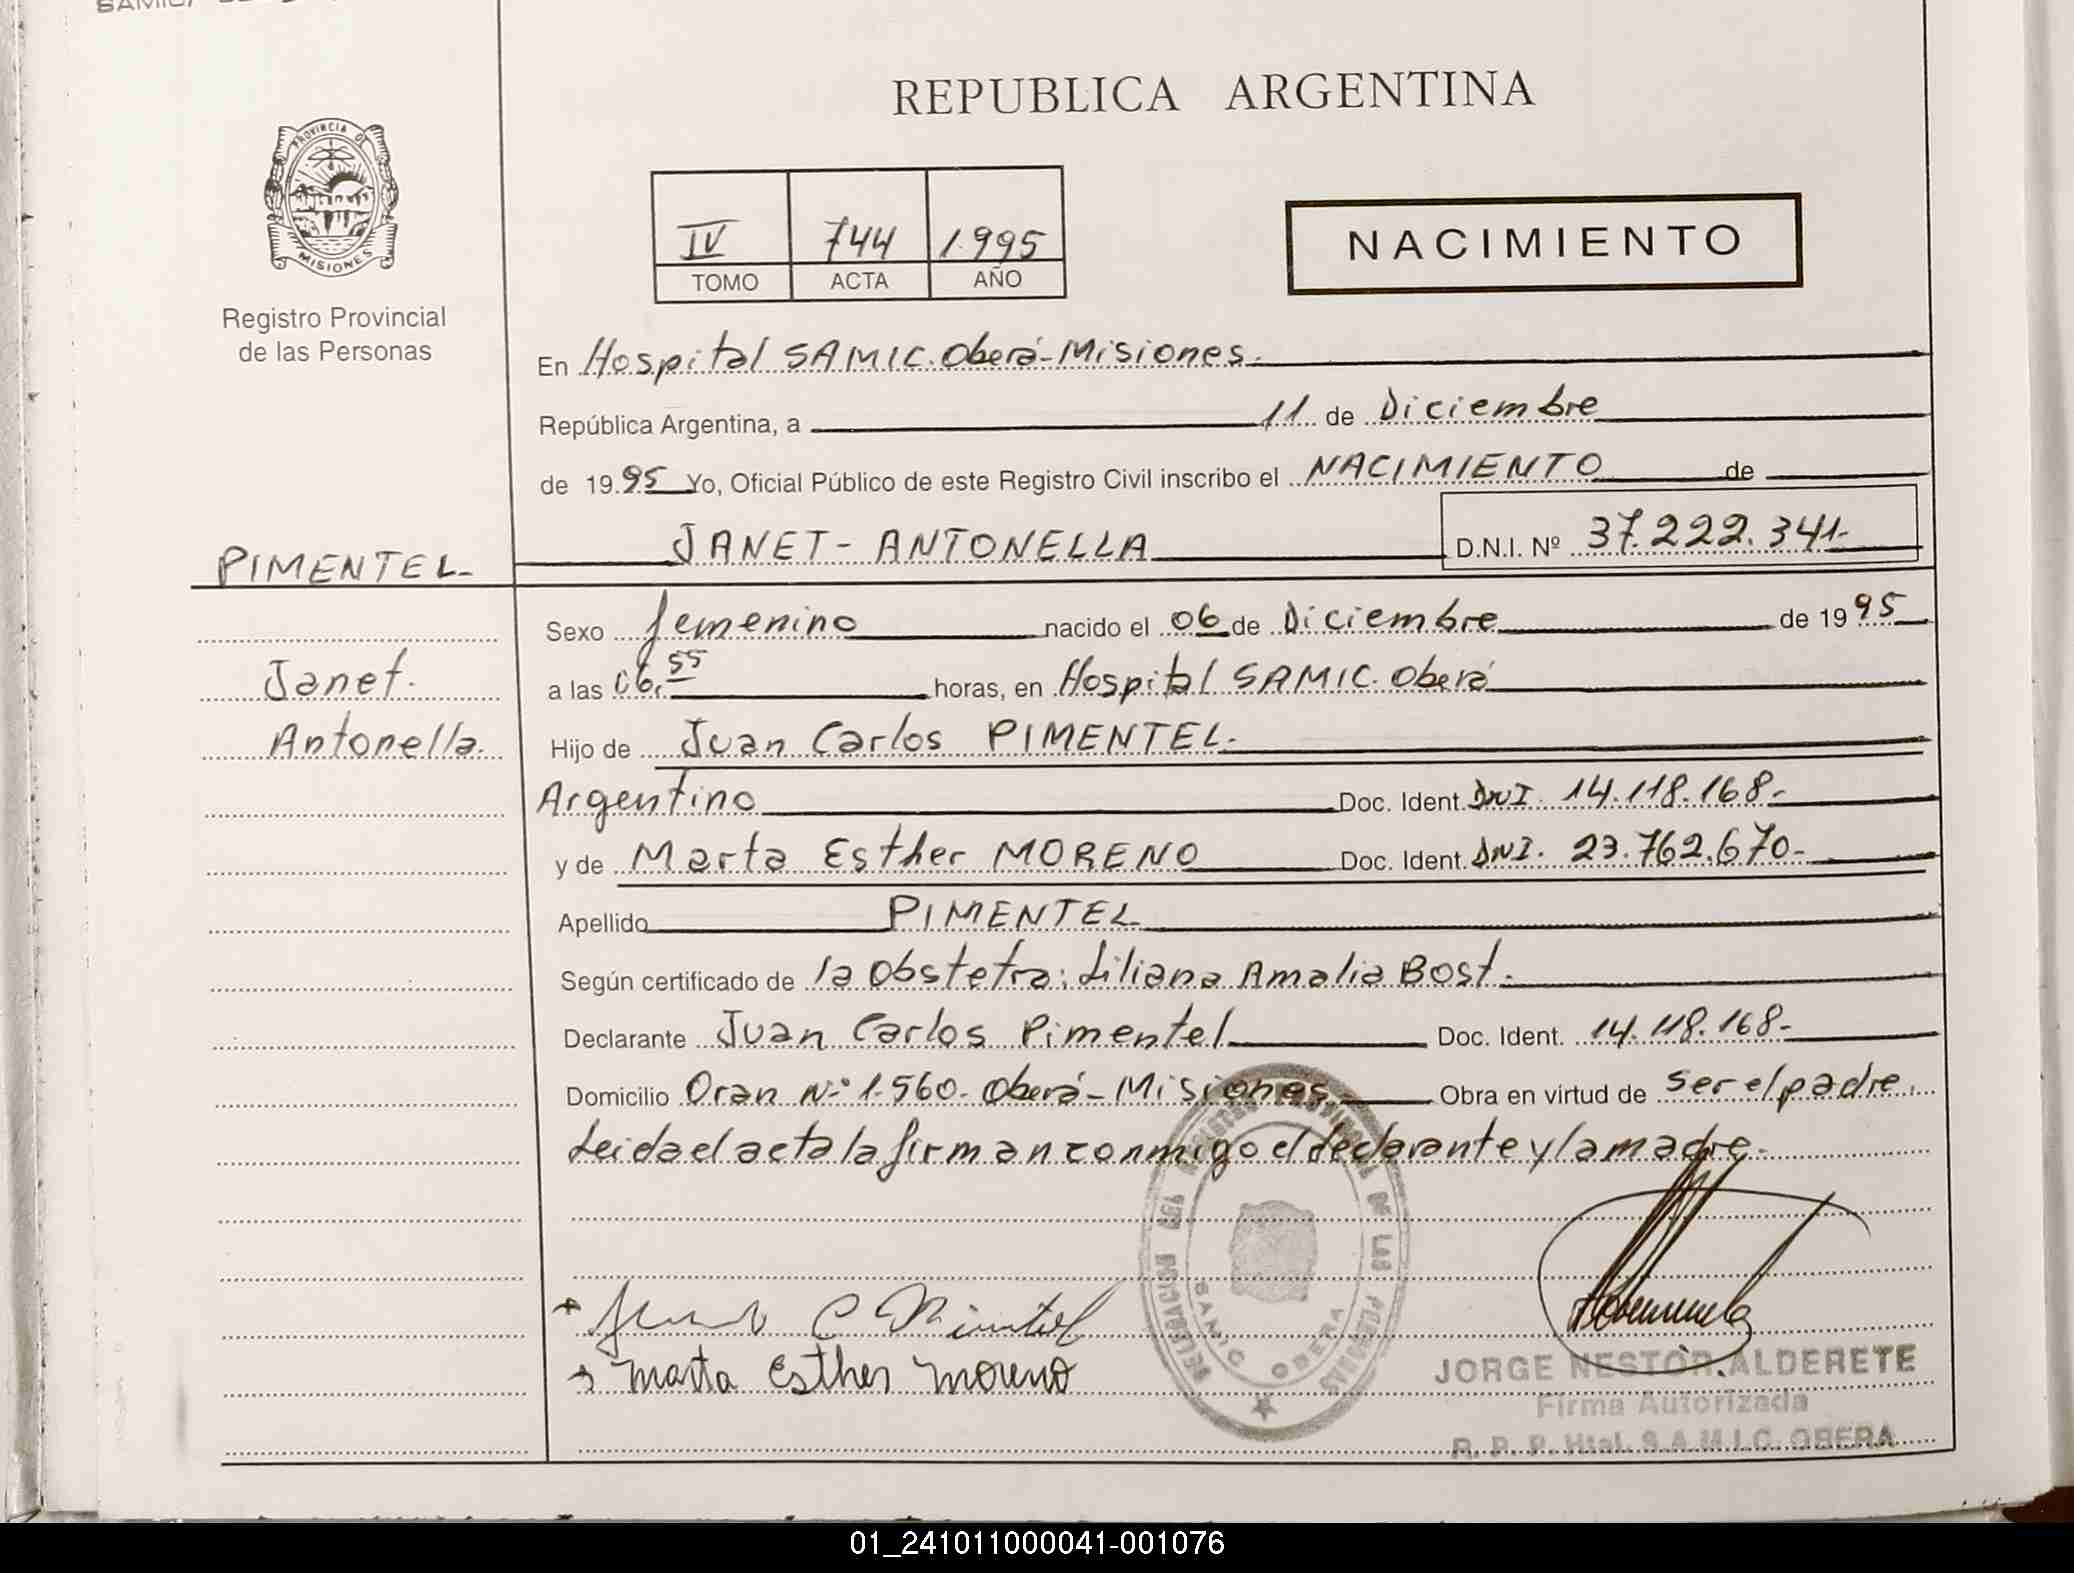 SAMIC,
REPUBLICA ARGENTINA
PROVINCIA DE
MISIONES
Registro Provincial
de las Personas
IV 744 1.995
TOMO ACTA AÑO
NACIMIENTO
En Hospital SAMIC. Oberá-Misiones.
República Argentina, a 11 de Diciembre
de 1995 Yo, Oficial Público de este Registro Civil inscribo el NACIMIENTO de
PIMENTEL- JANET- ANTONELLA D.N.I. Nº 37.222.341-
Sexo femenino nacido el 06 de Diciembre de 1995
Janet. a las 06,55 horas, en Hospital SAMIC. Oberá
Antonella. Hijo de Juan Carlos PIMENTEL.
Argentino Doc. Ident. DNI. 14.118.168-
y de Marta Esther MORENO Doc. Ident. DNI. 23.762.670-
Apellido PIMENTEL
Según certificado de la Obstetra: Liliana Amalia Bost.
Declarante Juan Carlos Pimentel Doc. Ident. 14.118.168-
Domicilio Oran N.º 1.560- Oberá-Misiones Obra en virtud de ser el padre.
Leida el acta la firman conmigo el declarante y la madre.
REGISTRO PROVINCIAL DE LAS PERSONAS
DELEGACION
SAMIC OBERA
C Pimentel
Marta Esther Moreno
JORGE NESTOR ALDERETE
Firma Autorizada
R. P. P. Htal. S.A.M.I.C. OBERA
01_241011000041-001076